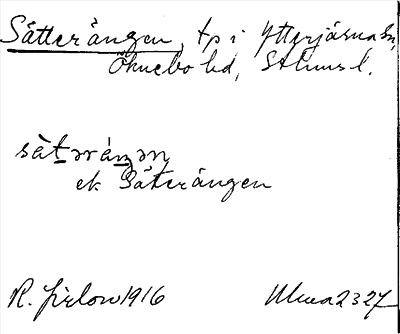 Sätterängen, tp i Ytterjärna sn,
Öknebo hd, Sthms l.
sàt̠əráŋ̠ən
ek Säterängen
R. Jirlow 1916
Muma 2327